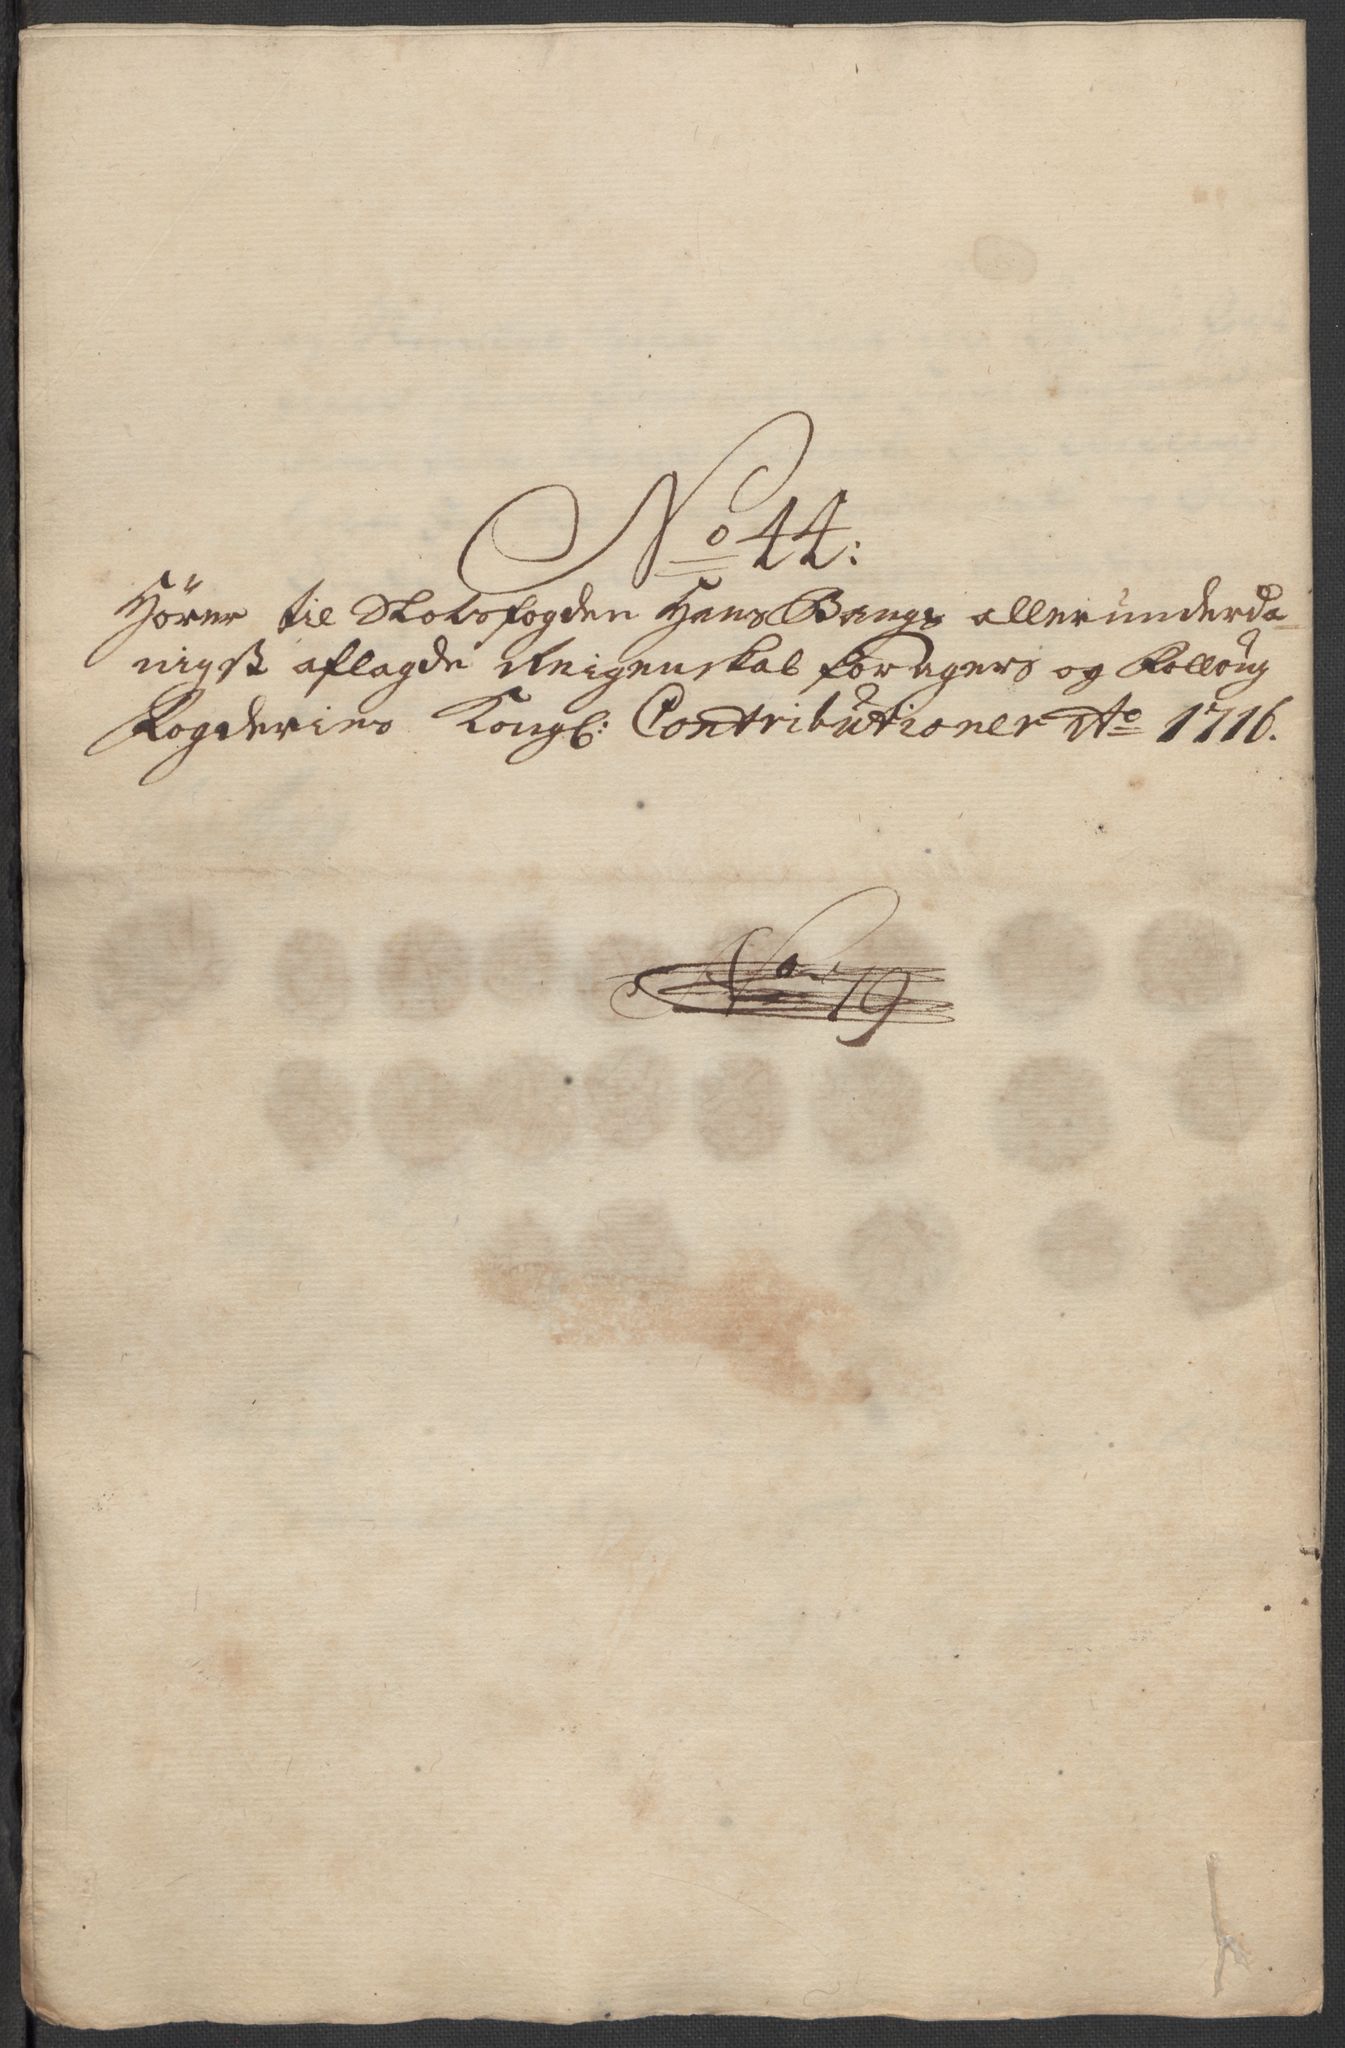 No 44:
Hörer til Slotsfogden Hans Bangs allerunderda-
nigst aflagde Reigenskab for Agers og Folloug
Fogderies Kongl: Contributioner Ao 1716.
No 19